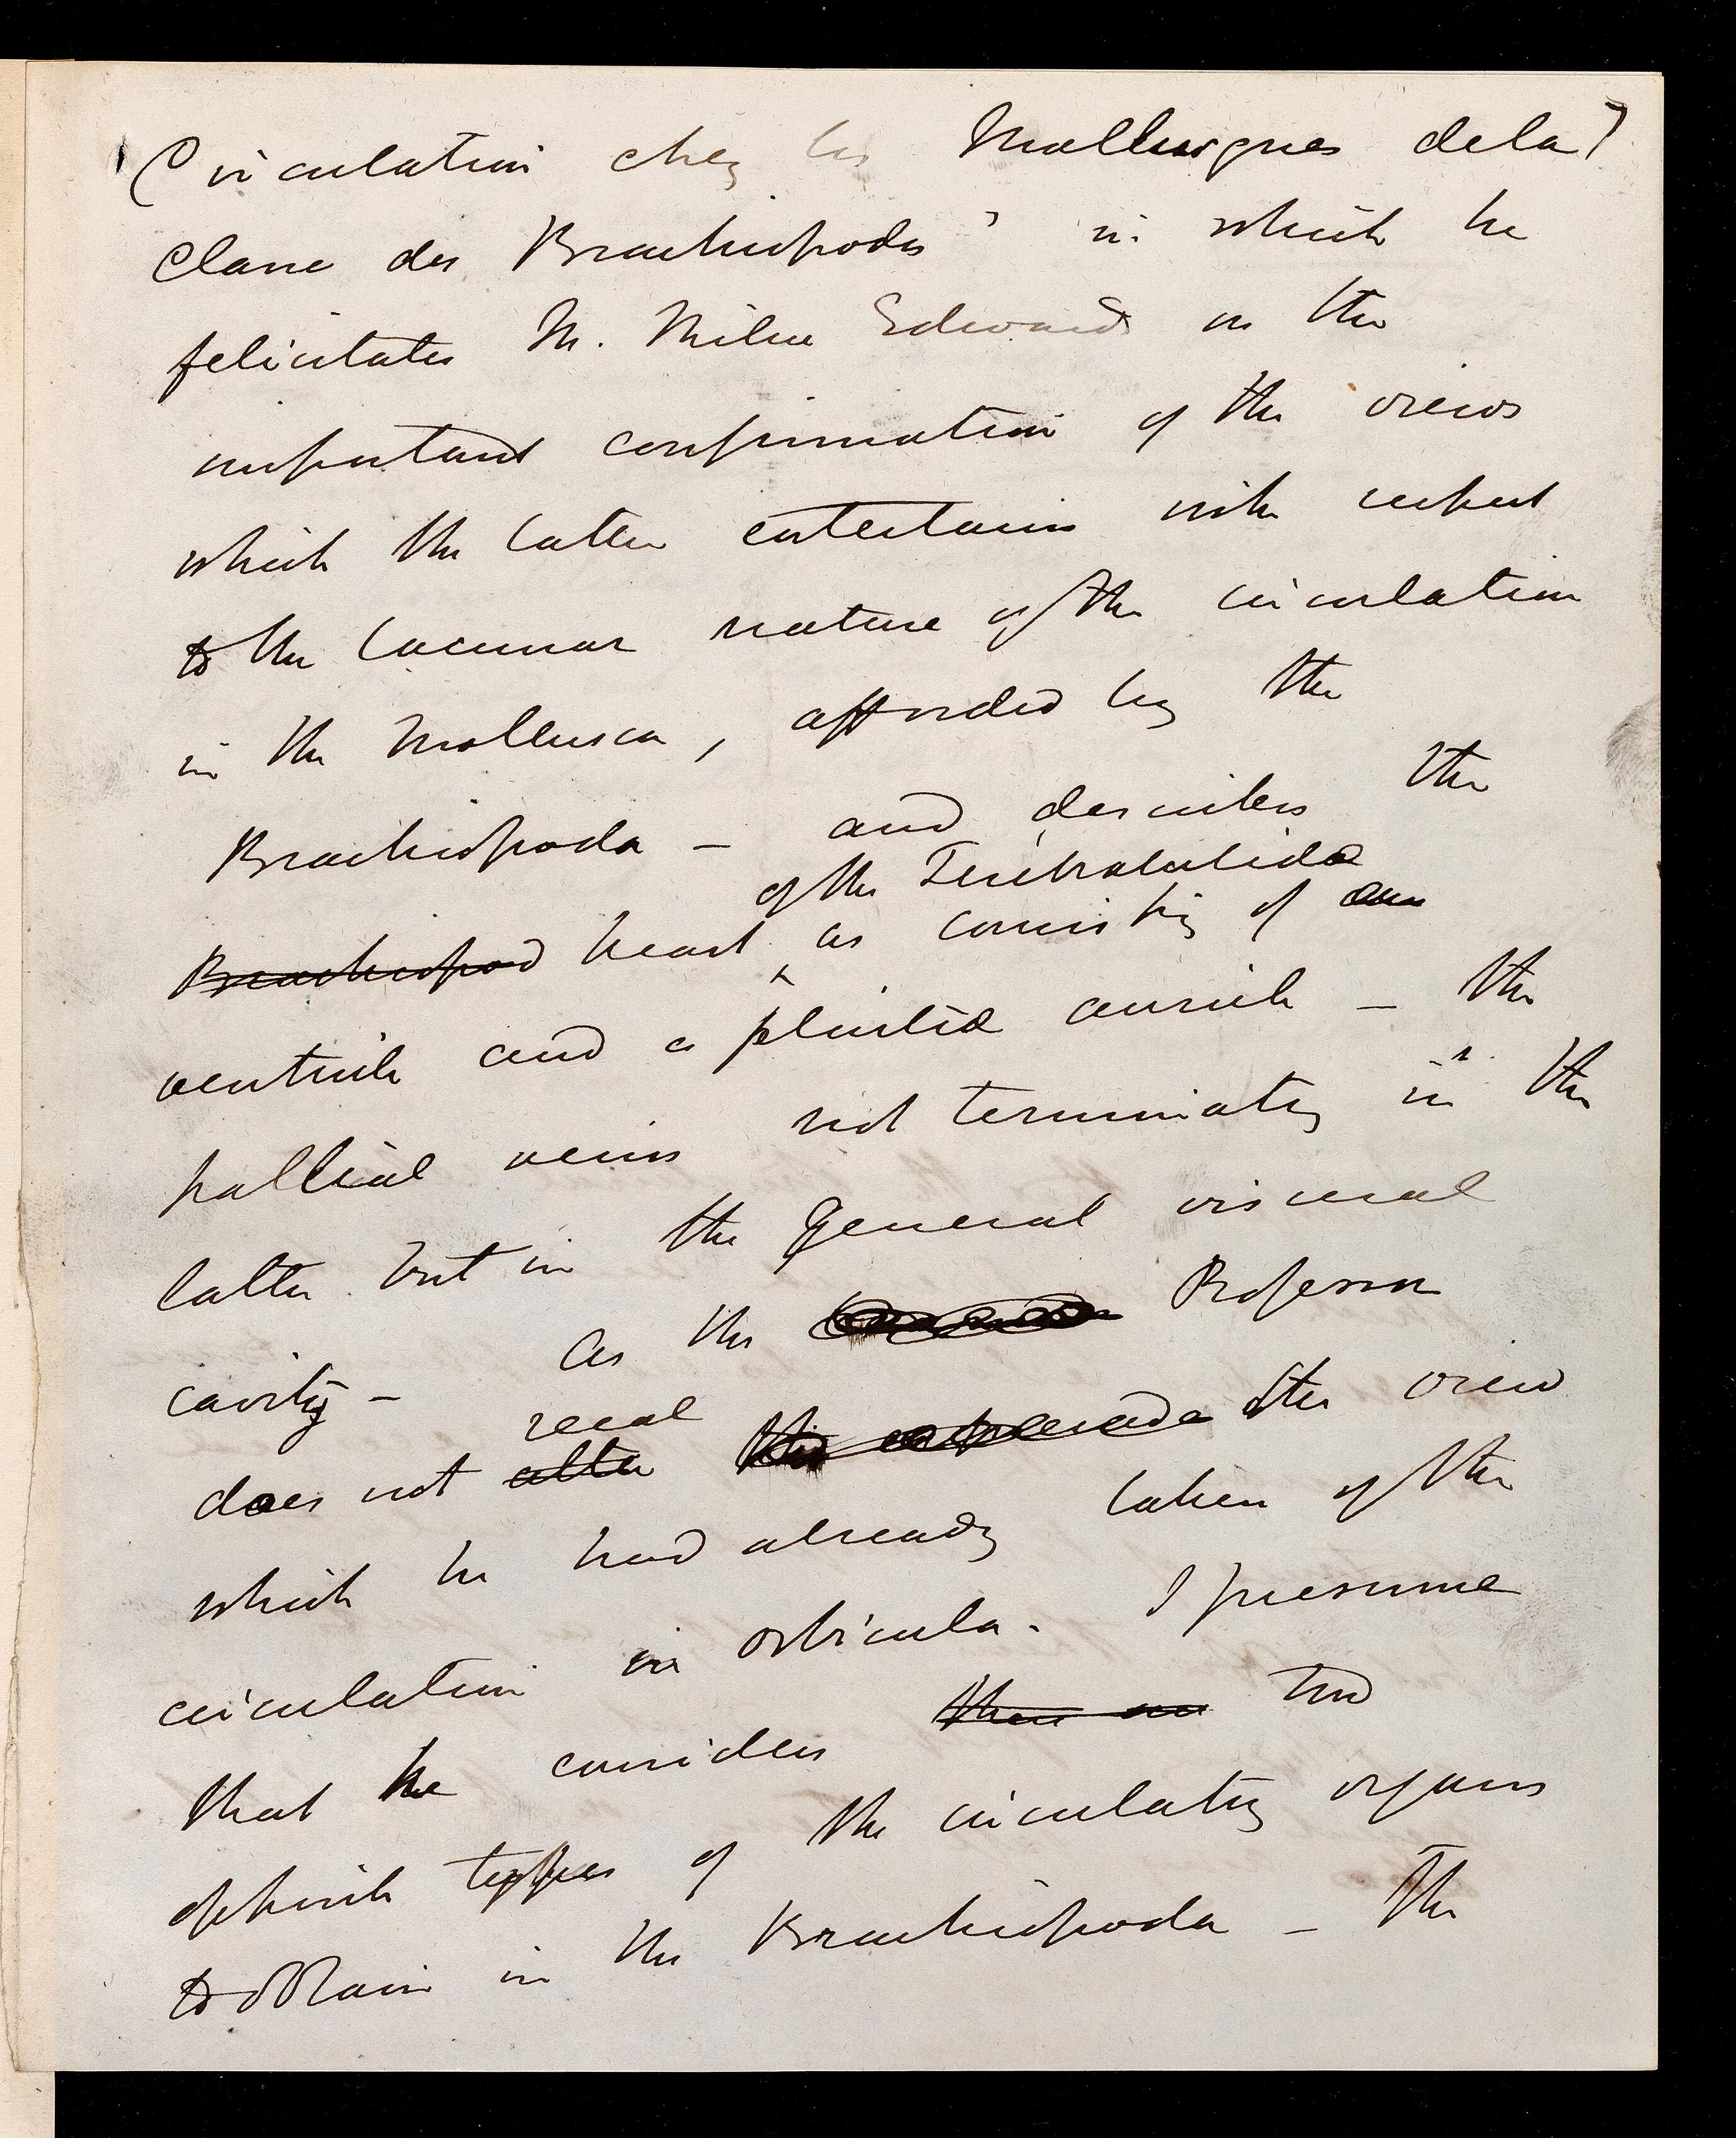 Circulation chez les Mollusques de la
Classe des Brachiopodes' in which he
felicitates M. Milne Edwards on the
important confirmation of the views
which the latter entertains with respect
to the lacunar nature of the circulation
in the Mollusca, afforded by the
Brachiopoda — and describes the
of the Terebratulidæ
Brachiopod heart as consisting of
ventricle and a plaited auricle — the
pallial veins not terminating in the
latter but in the general visceral
cavity — As the Professor
recal
does not alter the view
which he had already taken of the
circulation in Orbicula. I presume
that he considers there are two
distinct types of the circulating organs
to obtain in the Brachiopoda — The